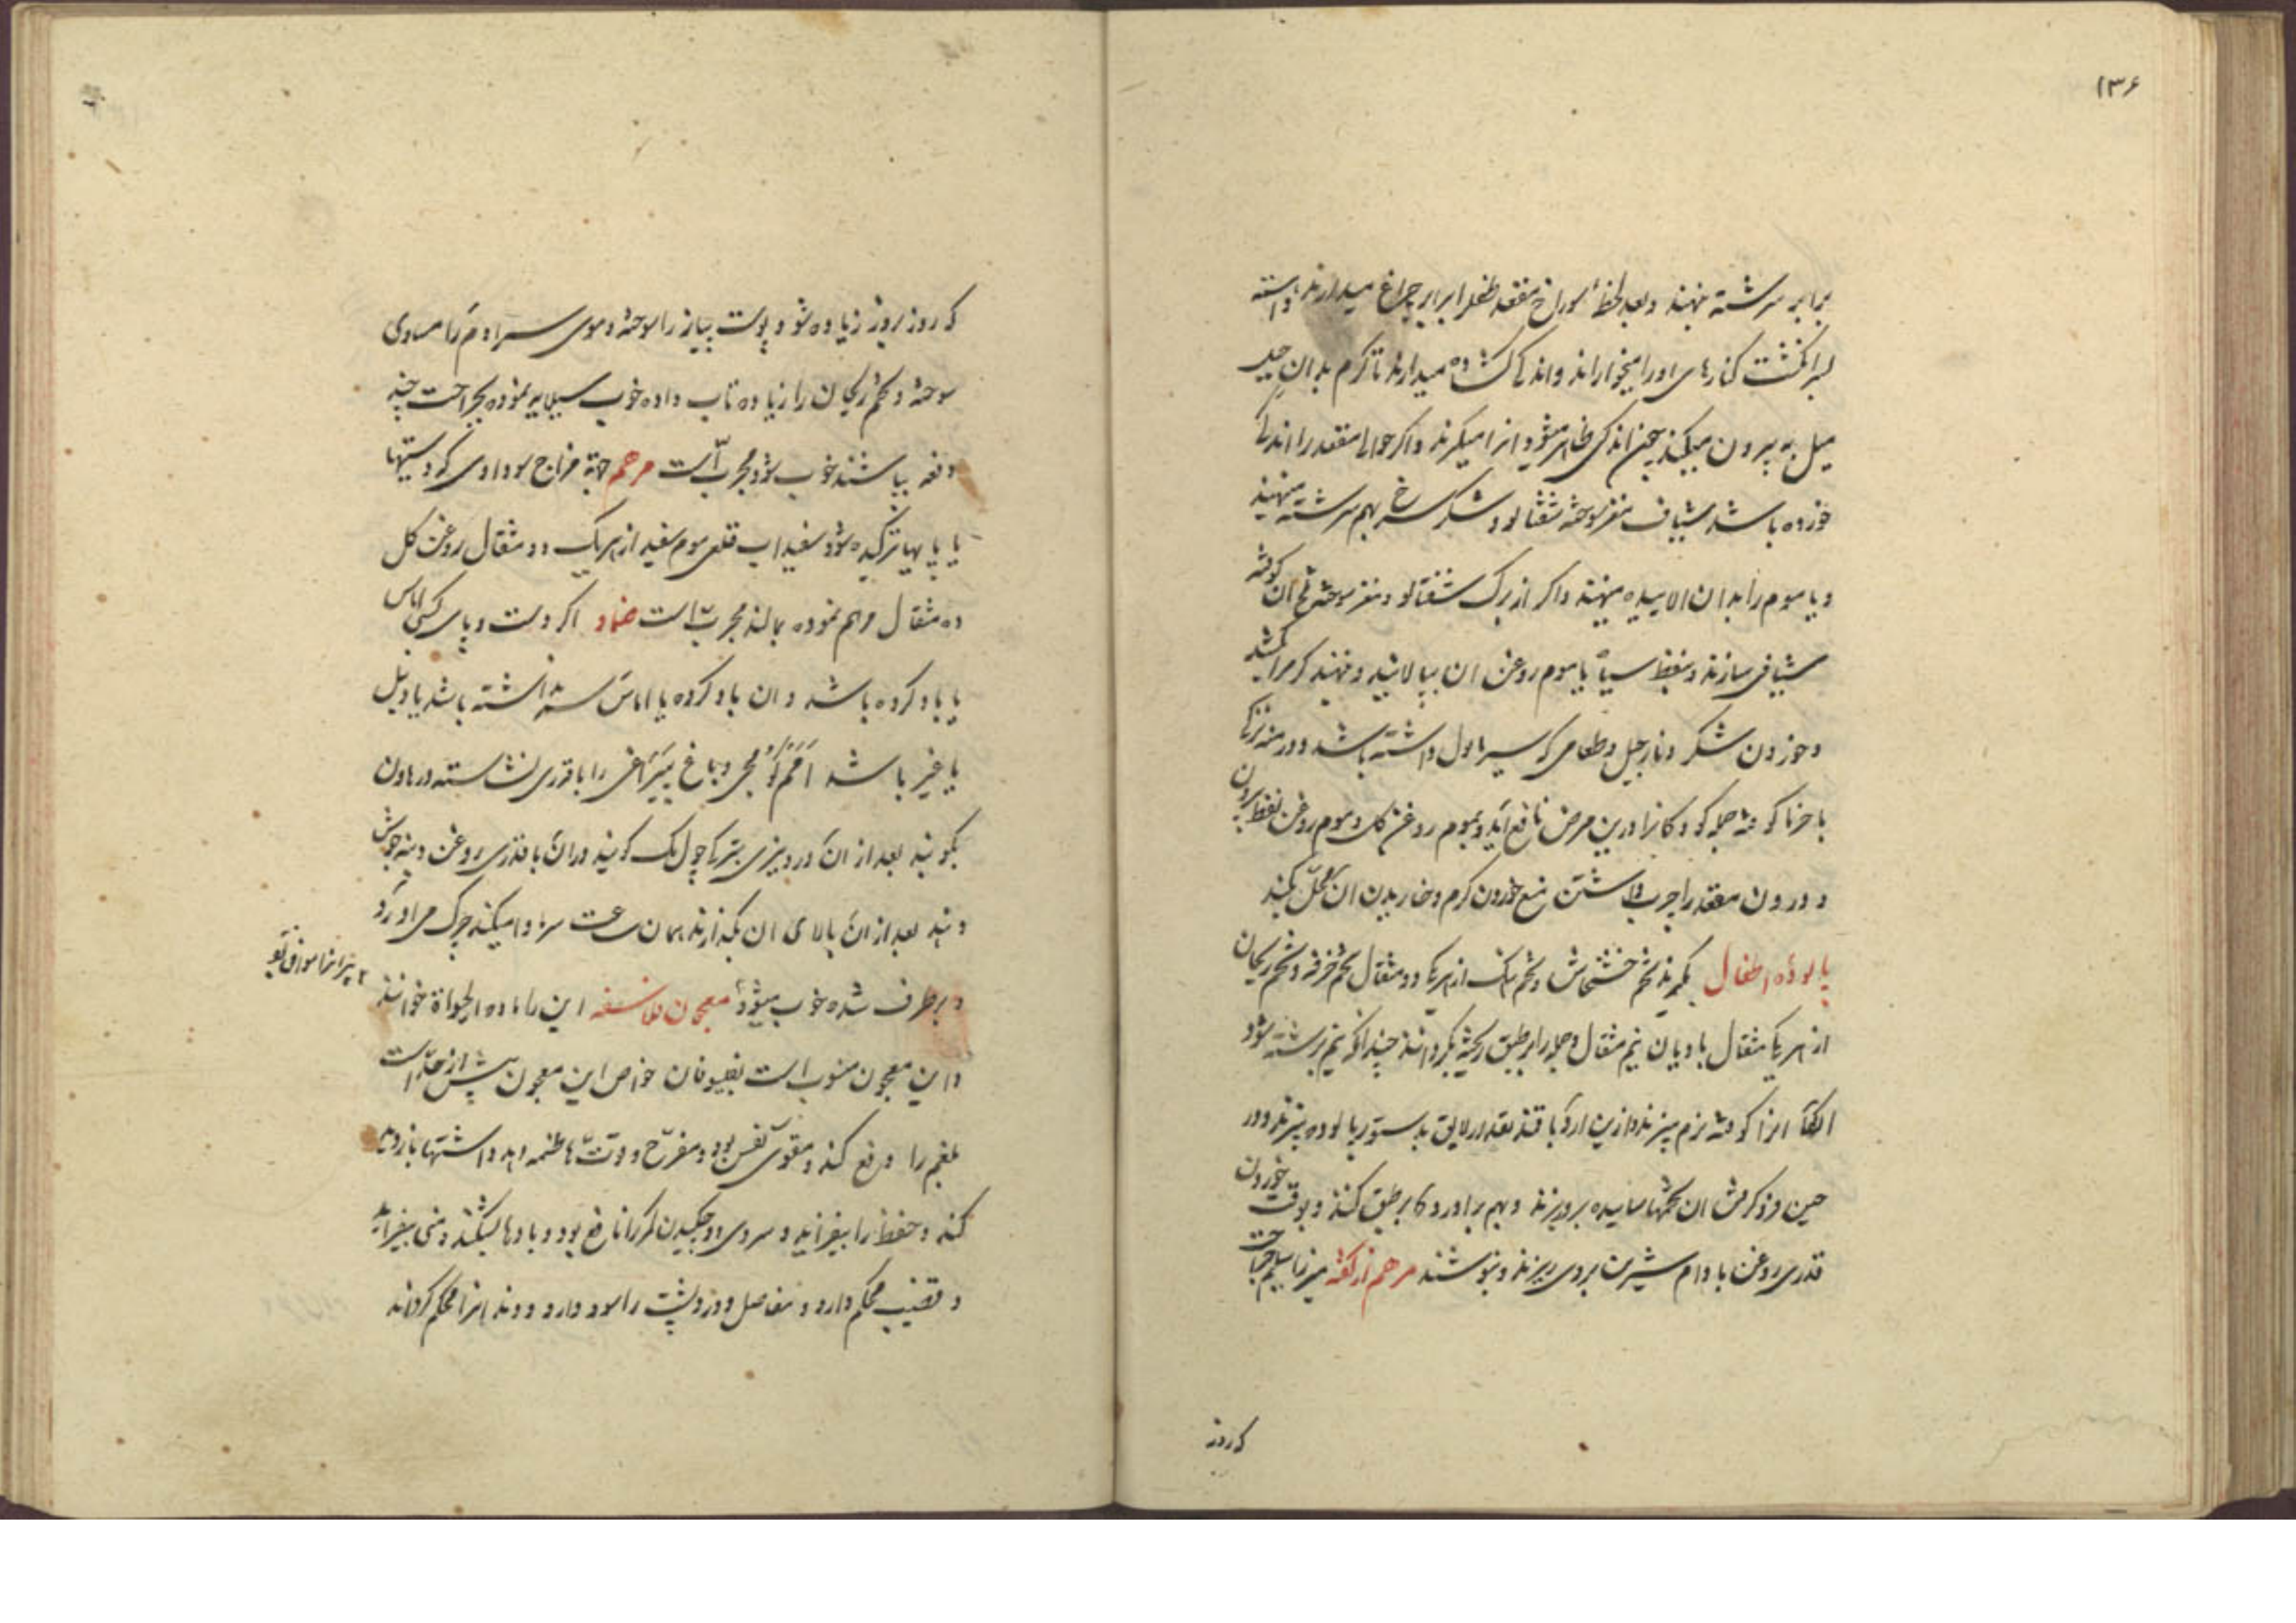 ۱۳۶
برابر سرشته نهند و بعد لحظهٔ سوراخ مقعد طفل را برابر چراغ میدارند و آهسته
بسر انگشت کنارهای او را میخواراند و اندکی کشاده میدارند تا کرم بدان
میل به بیرون میکند چون اندکی ظاهر میشود انرا میکیرند و اکر حوالی مقعد را اندکی
خورده باشد شیاف مغز سوخته شفتالو و شکر سرخ بهم سرشته مینهند
و یا موم را بدان الاییده مینهند و اکر از برک شفتالو و مغز سوخته تخ ان کوفته
شیافی سازند و بنفط سیاه یا موم روغن ان بیالایند و نهند کرم را بکشد
و خوردن شکر و نارجیل و طعامی که سیر اول داشته باشد و درمنه ترکی
با خرما کوفته جمله کودکانرا درین مرض نافع آید و بموم روغن کل و موم روغن نفط بیرون
و درون مقعد را چرب داشتن منع خوردن کرم و خاریدن ان محل بکند
پالودهٔ اطفال بکیرند تخم خشخاش و تخم از هریکی دو مثقال تخم خرفه و تخم ریحان
از هریک مثقال بادیان نیم مثقال و جمله را بر طبق ریخته بکردانند چندانکه نیم برشته شود
انکاه انرا کوفته نرم بپزند و ازین ارد با قند بقدر لایق بدستور پالوده بپزند و در
حین فرو کرفتن ان تخمها ساییده بروریزند و بهم براورده بر طبق کنند و بوقت خوردن
قدری روغن بادام شیرین بروی ریزند و بنوشند مرهم از کفته میرزا سلیم جراحت
که روز
که روز بروز زیاده شود پوست پیاز را سوخته و موی سر ادم را مساوی
سوخته و تخم ریحان را زیاده تاب داده خوب ساییده نموده بجراحت چند
دفعه بپاشند خوب شود مجرب است مرهم جهة مزاج سوداوی که دستها
یا پایها ترکیده شود سفیداب قلعی موم سفید از هریک دو مثقال روغن کل
ده مثقال مرهم نموده بمالند مجرب است ضماد اکر دست و پای کسی اماس
یا باد کرده باشد و ان باد کرده یا اماس سر نداشته باشد یا دنبل
یا غیر باشد را با قدری نشاسته در هاون
بکوبند بعد از ان در دیزی بترکی چولمک کویند دران با قدری روغن و پنه جوش
دهند بعد از ان بالای ان بکذارند همان ساعت سر وا میکند چرک می اورد
و برطرف شده خوب میشود معجون فلاسفه این را ماده الحیواة خوانند
و این معجون منسوب است بفیلسوفان خواص این معجون بیش از حد است
بلغم را دفع کند و مقوی نفس بود و مفرح و قوت هاضمه دهد و اشتها بازدید
کند و حفظ را بیفزاید و سردی و چکیدن کمر را نافع بود و بادها بشکند و منی بیفزاید
و قضیب محکم دارد و مفاصل و درد پشت را سود دارد و دندانرا محکم کرداند